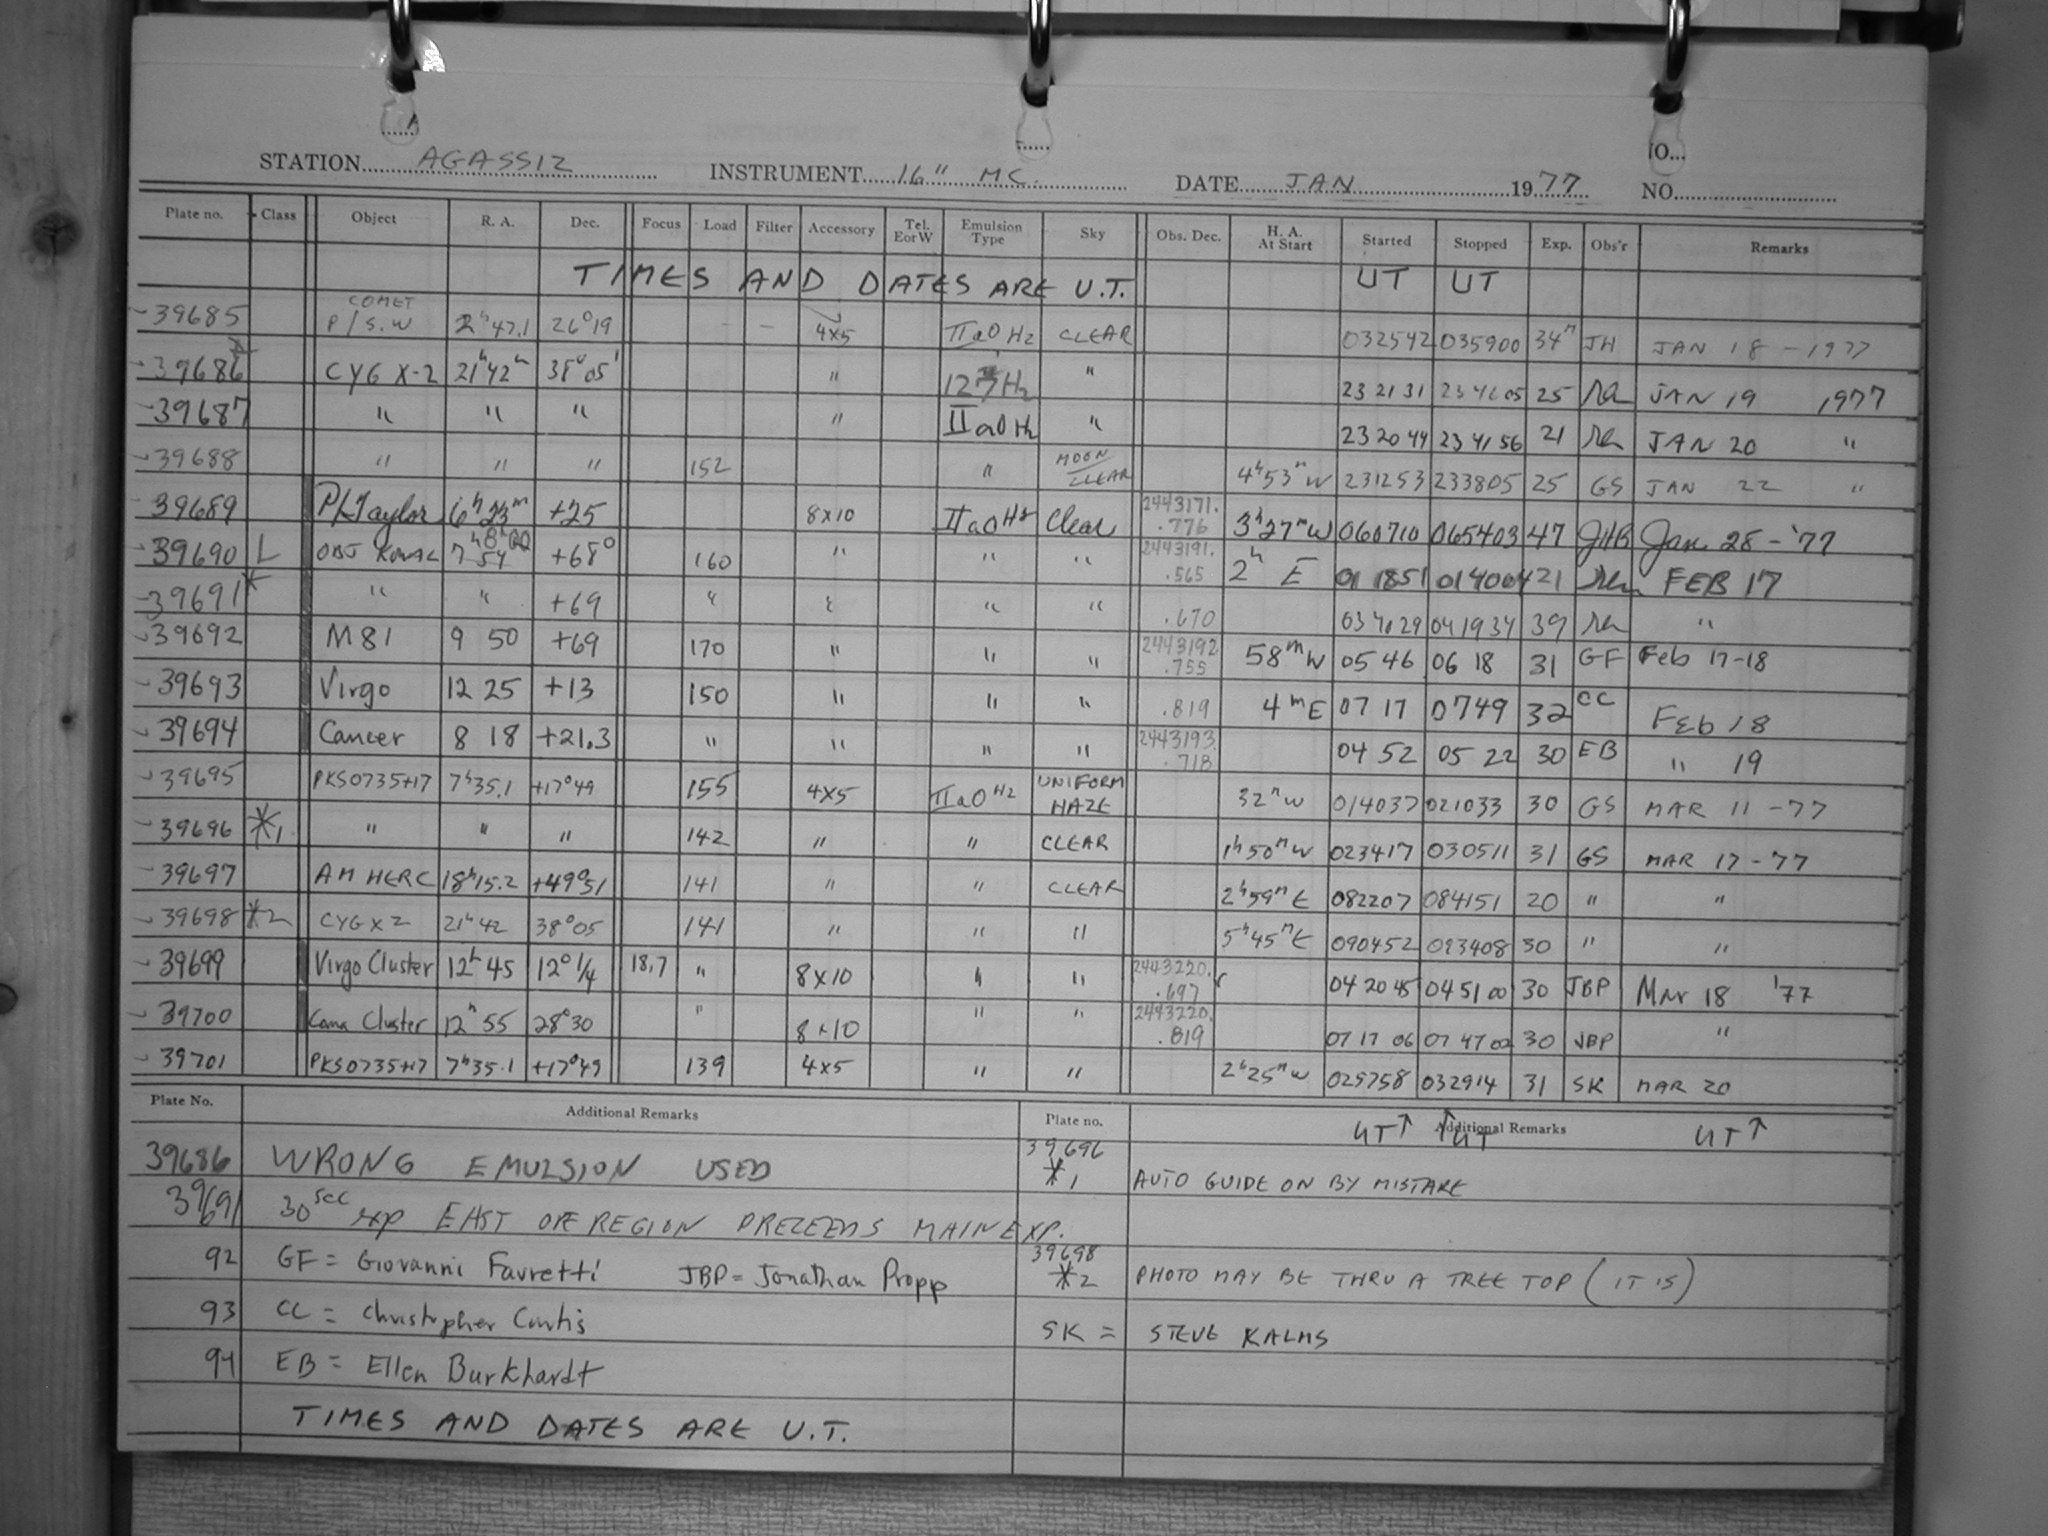 STATION AGASSIZ INSTRUMENT 16" MC. DATE JAN 1977 NO.
Plate no. Class Object R. A. Dec. Focus Load Filter Accessory Tel. E or W Emulsion Type Sky Obs. Dec. H. A. At Start Started Stopped Exp. Obs'r Remarks
TIMES AND DATES ARE U.T. UT UT
39685 COMET P/S.W 2h47.1 26°19 - - 4x5 IIaO H2 CLEAR 032542 035900 34m JH JAN 18 - 1977
39686 * CYG X-2 21h42m 38°05' " H2 " 23 21 31 25 JAN 19 1977
39687 " " " " IIaO H2 " 23 20 44 23 41 56 21 JAN 20 "
39688 " " " 152 " MOON CLEAR 4h53m W 231253 233805 25 GS JAN 22 "
39689 P/Taylor 6h23m +25 8x10 IIaO H2 Clear 2443171. .776 3h27m W 060710 065403 47 JHB Jan 28 - '77
39690 L OBJ KOWAL 7 54 +68° 160 " " " 2443191. .565 2h E 01 1851 014004 21 FEB 17
39691 * " " +69 " " " " .670 034029 041934 39 "
39692 M81 9 50 +69 170 " " " 2443192. .755 58m W 05 46 06 18 31 GF Feb 17-18
39693 Virgo 12 25 +13 150 " " " .819 4m E 07 17 0749 32 CC Feb 18
39694 Cancer 8 18 +21.3 " " " " 2443193. .718 04 52 05 22 30 EB " 19
39695 PKS0735+17 7h35.1 +17°49 155 4x5 IIaO H2 UNIFORM HAZE 32m W 014037 021033 30 GS MAR 11 -77
39696 *1 " " " 142 " " CLEAR 1h50m W 023417 030511 31 GS MAR 17-'77
39697 AM HERC 18h15.2 +49°51 141 " " CLEAR 2h59m E 082207 084151 20 " "
39698 *2 CYG X 2 21h42 38°05 141 " " " 5h45m E 090452 093408 30 " "
39699 Virgo Cluster 12h45 12°1/4 18.7 " 8x10 " " 2443220. .697 04 20 45 04 51 00 30 JBP Mar 18 '77
39700 Coma Cluster 12h55 28°30 " 8x10 " " 2443220. .819 07 17 06 07 47 00 30 JBP "
39701 PKS0735+17 7h35.1 +17°49 139 4x5 " " 2h25m W 025758 032914 31 SK MAR 20
Plate No. Additional Remarks Plate no. Additional Remarks
UT↑ ↑UT UT↑
39686 WRONG EMULSION USED 39696 *1 AUTO GUIDE ON BY MISTAKE
39691 30sec exp EAST OF REGION PRECEEDS MAIN EXP.
92 GF = Giovanni Favretti JBP = Jonathan Propp 39698 *2 PHOTO MAY BE THRU A TREE TOP (IT IS)
93 CC = Christopher Curtis SK = STEVE KALMS
94 EB = Ellen Burkhardt
TIMES AND DATES ARE U.T.